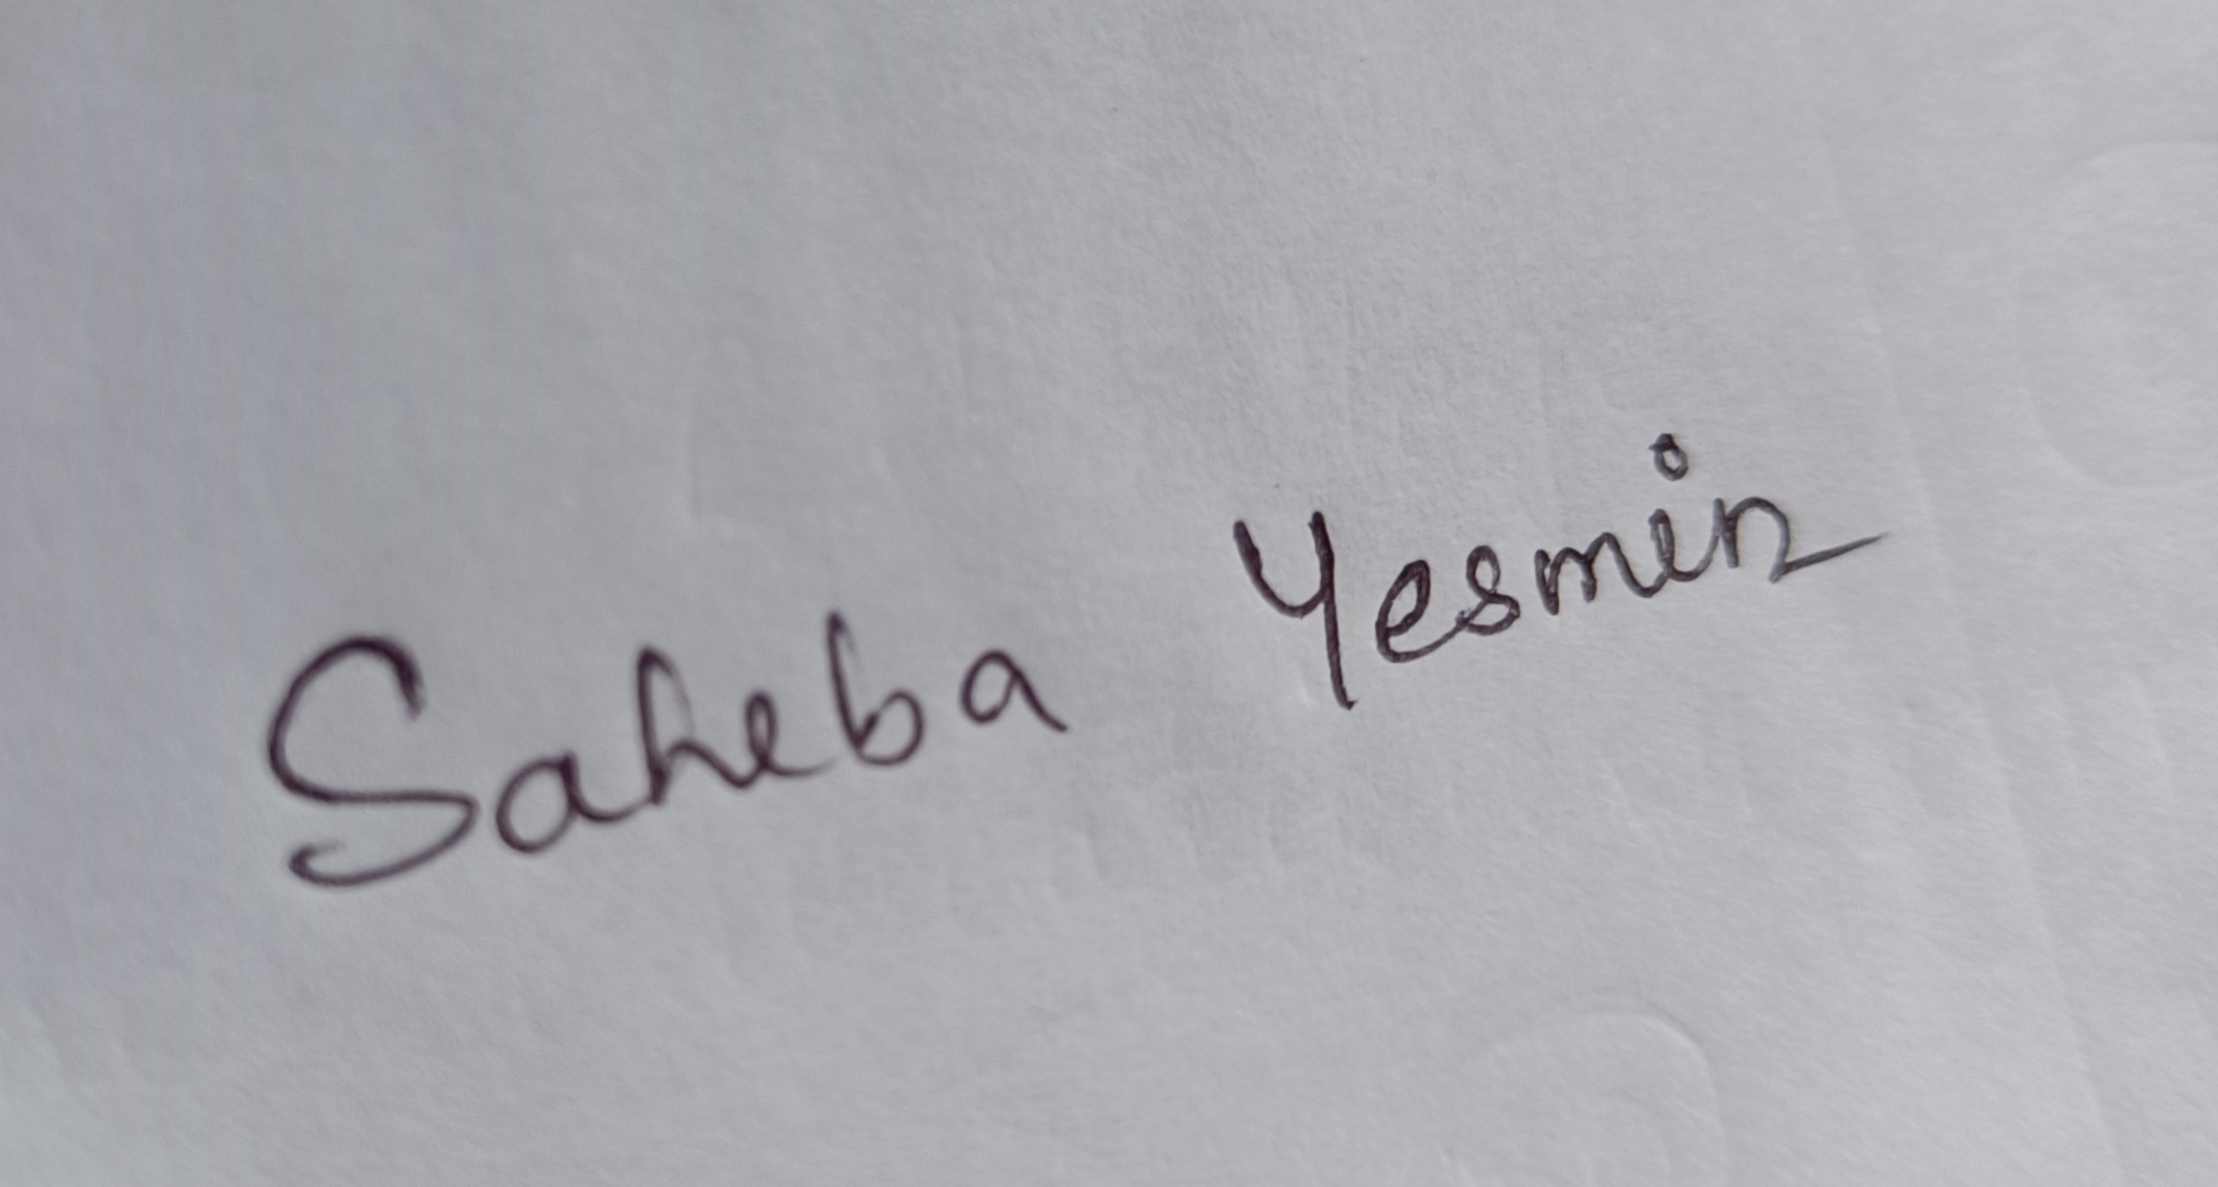 Saheba Yesmin